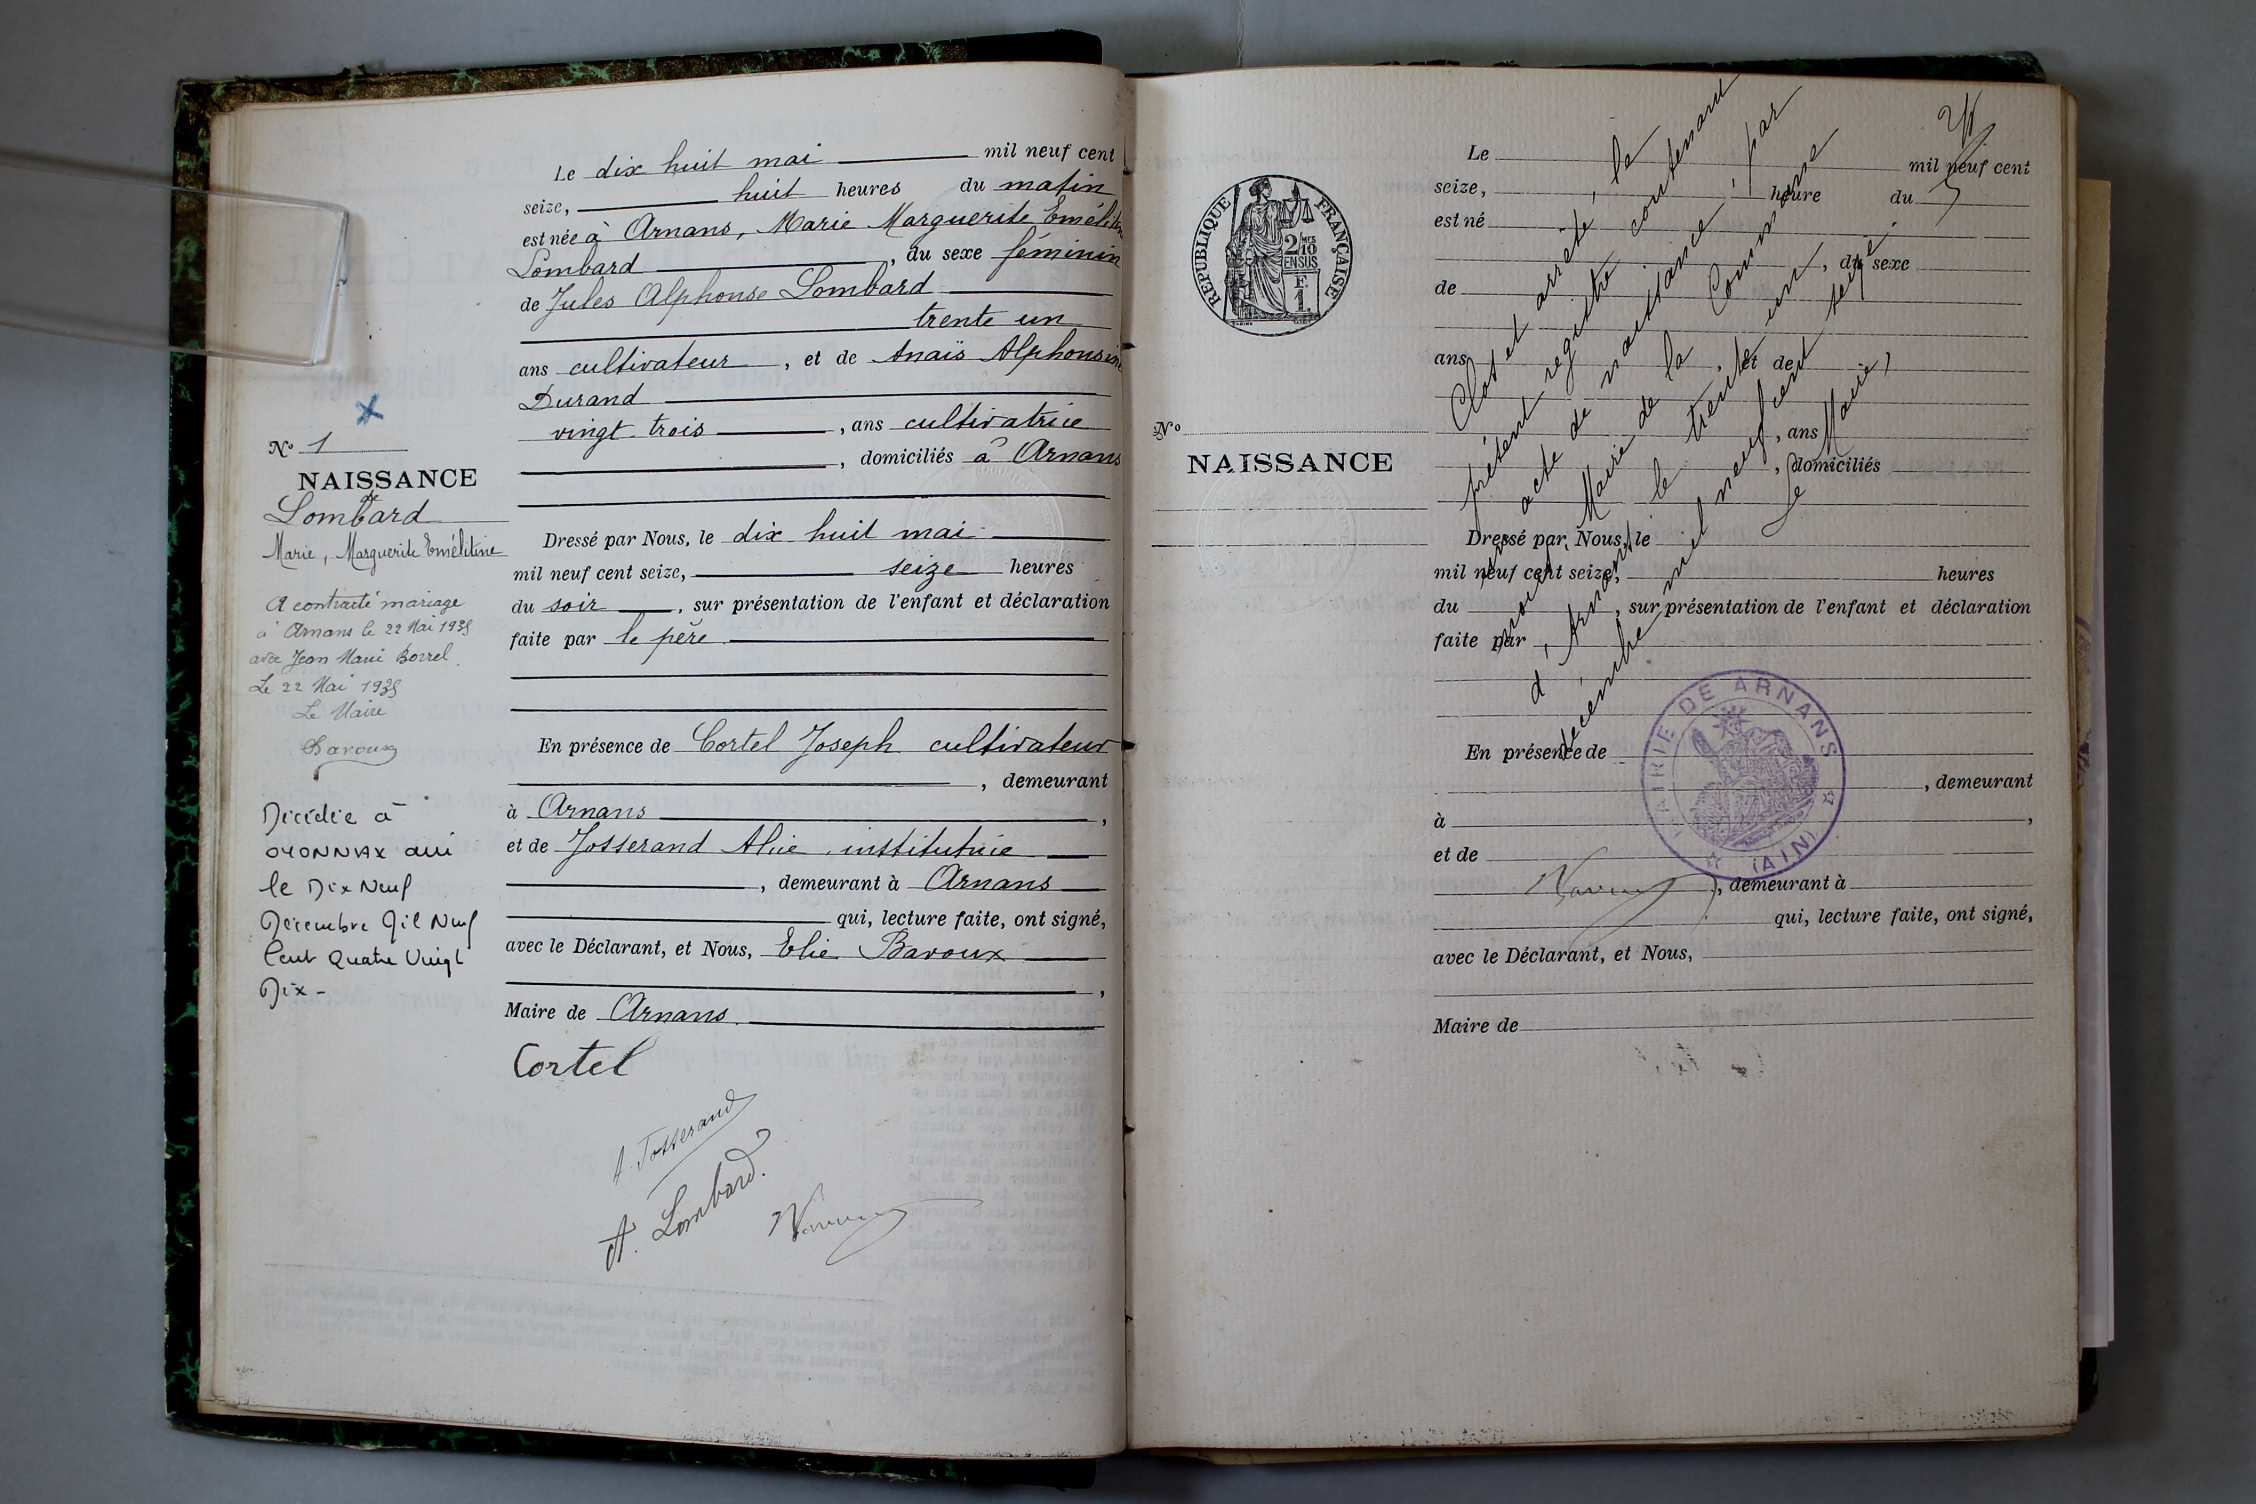 Le dix huit mai mil neuf cent
seize, huit heures du matin
est née à Arnans, Marie Marguerite Eméliti
Lombard, du sexe féminin
de Jules Alphonse Lombard
trente un
ans cultivateur, et de Anaïs Alphonsine
Durand
vingt-trois, ans cultivatrice
, domiciliés à Arnans
No 1
NAISSANCE
de
Lombard
Marie, Marguerite Emélitine
A contracté mariage
à Arnans le 22 Mai 1935
avec Jean Marie Borrel.
Le 22 Mai 1935
Le Maire
Baroux
Décédée à
OYONNAX Ain
le Dix Neuf
Décembre Mil Neuf
Cent Quatre Vingt
Dix -
Dressé par Nous, le dix huit mai
mil neuf cent seize, seize heures
du soir, sur présentation de l'enfant et déclaration
faite par le père
En présence de Cortel Joseph cultivateur
, demeurant
à Arnans,
et de Josserand Alice institutrice
, demeurant à Arnans
qui, lecture faite, ont signé,
avec le Déclarant, et Nous, Elie Baroux
,
Maire de Arnans.
Cortel
A. Josserand
A. Lombard.
REPUBLIQUE FRANÇAISE
2/10
EN SUS
F.
1.
No
NAISSANCE
Le mil neuf cent
seize, heure du
est né
, du sexe
de
ans, et de
, ans
, domiciliés
Dressé par Nous, le
mil neuf cent seize, heures
du, sur présentation de l'enfant et déclaration
faite par
En présence de
, demeurant
à,
et de
, demeurant à
qui, lecture faite, ont signé,
avec le Déclarant, et Nous,
Maire de
Clos et arrêté, le
présent registre contenant un
acte de naissance, par nous,
Maire de la Commune
d'Arnans le trente un
décembre mil neuf cent seize.
Le Maire,
MAIRIE DE ARNANS
(AIN)